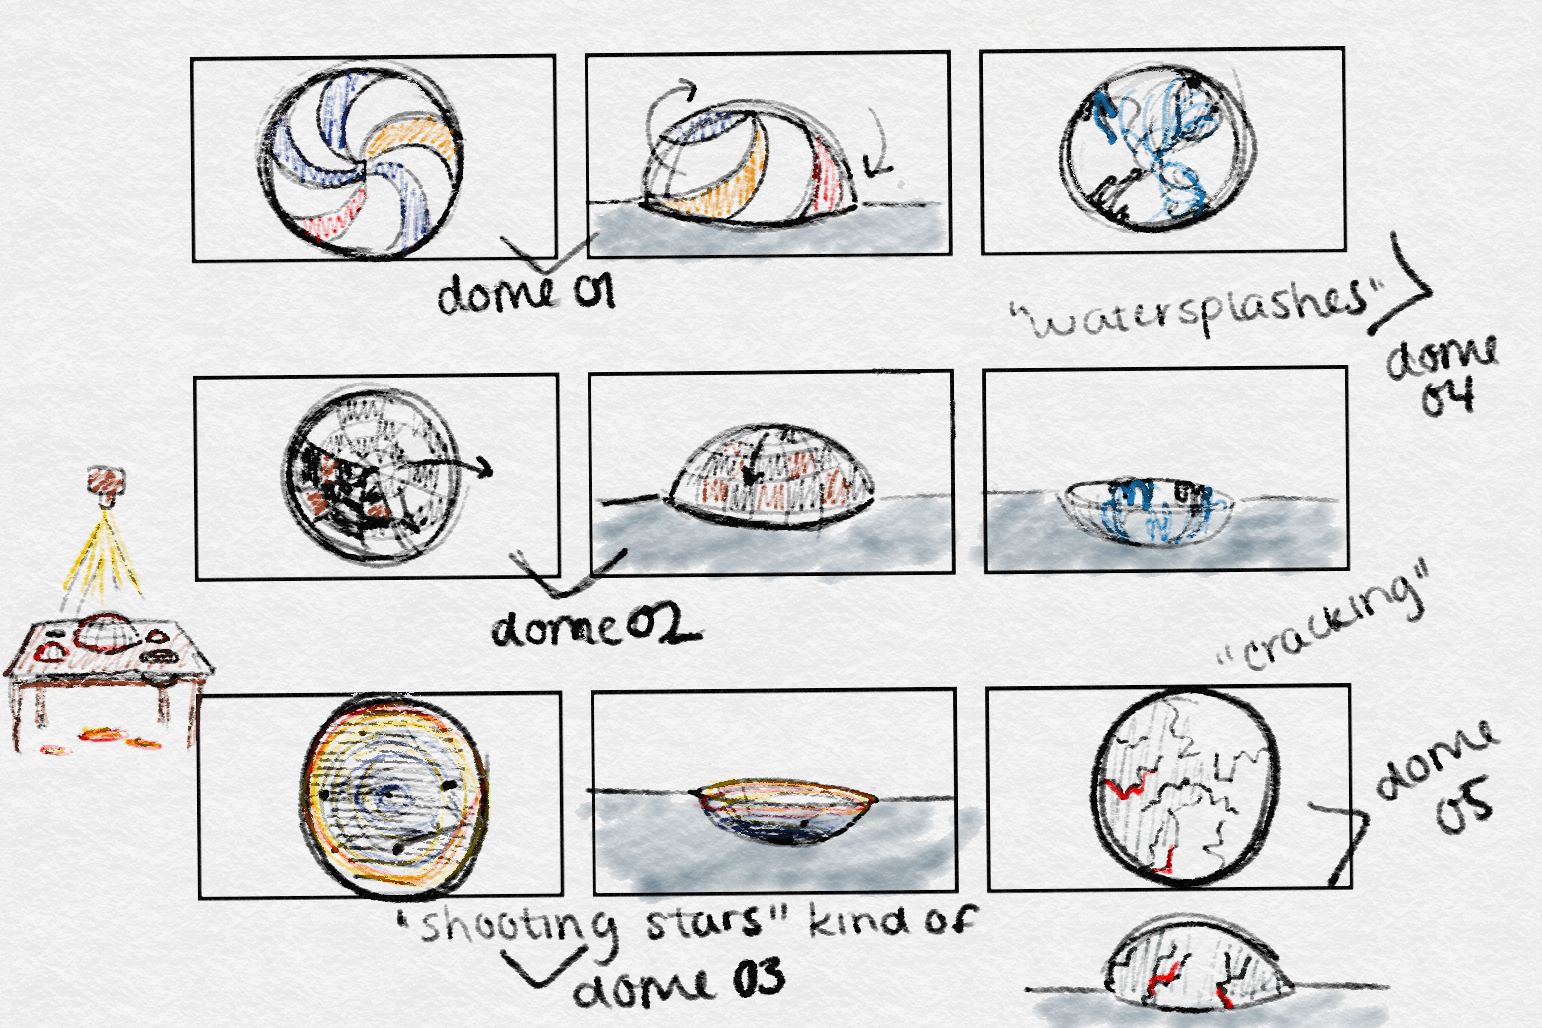 dome 01
"watersplashes"
dome
04
dome 02
"cracking"
dome
05
"shooting stars" kind of
dome 03